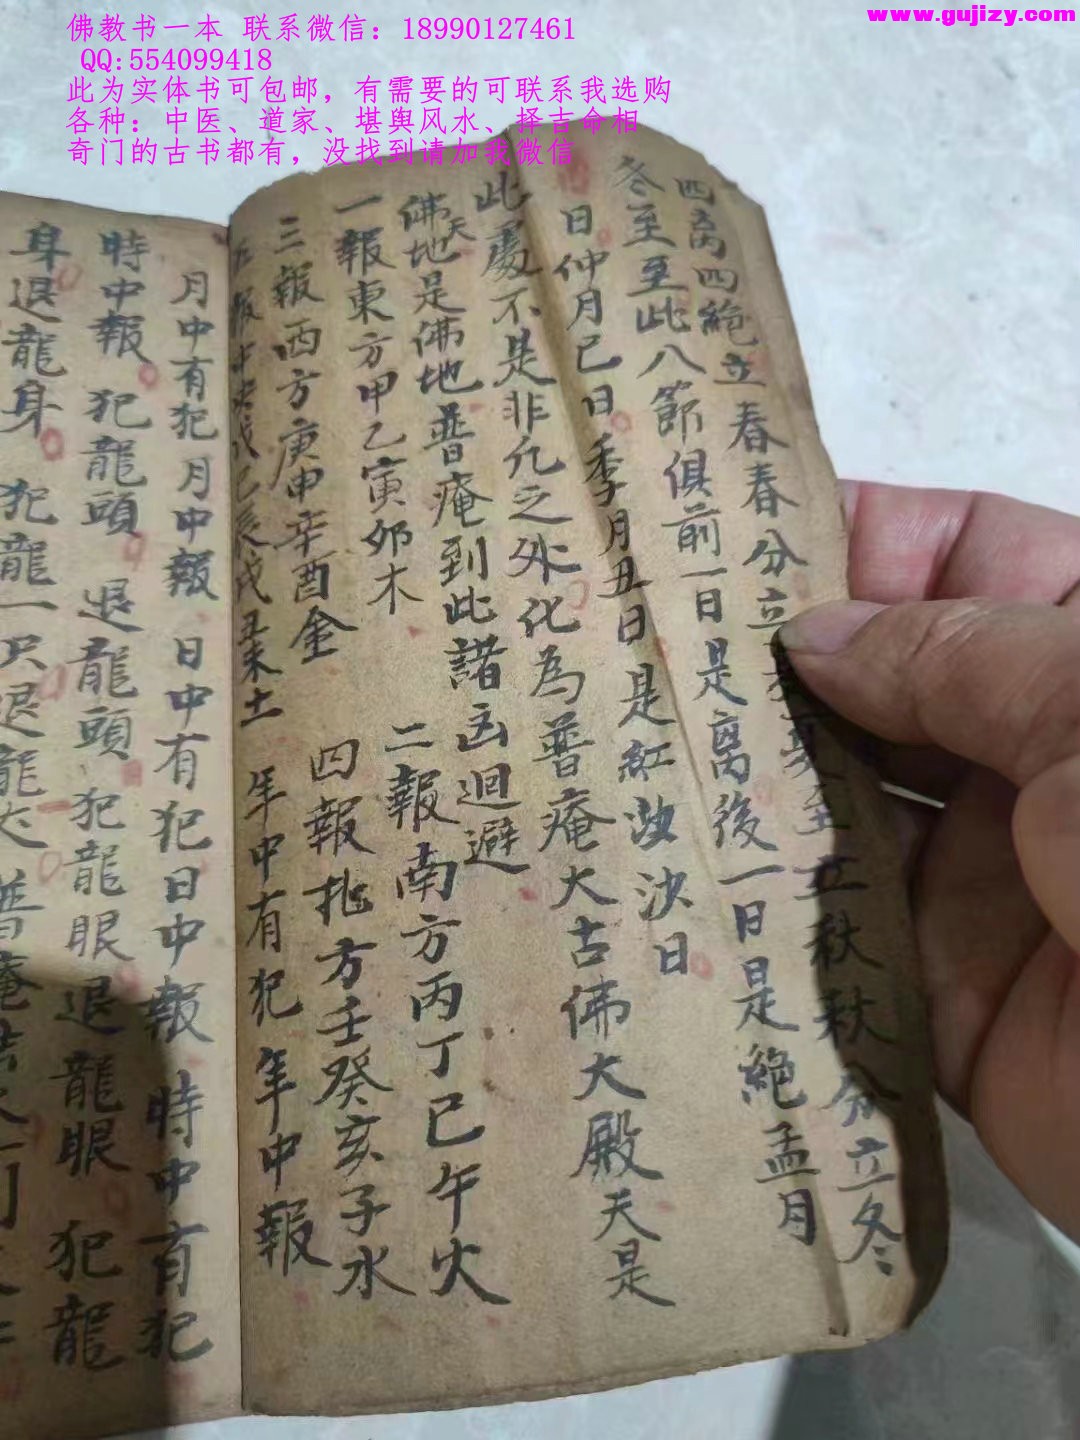 www.gujizy.com
佛教书一本 联系微信：18990127461
QQ:554099418
此为实体书可包邮，有需要的可联系我选购
各种：中医、道家、堪舆风水、择吉命相
奇门的古书都有，没找到请加我微信
四离四絕立春春分立夏夏至立秋秋分立冬
冬至至此八節俱前一日是离後一日是絶孟月
日仲月巳日季月丑日是紅渉決日
此處不是非凢之外化為普庵大古佛大殿天是
佛天地是佛地普庵到此諸凶迴避
一報東方甲乙寅卯木 二報南方丙丁巳午火
三報西方庚申辛酉金 四報北方壬癸亥子水
五報中央戊己辰戌丑未土 年中有犯年中報
月中有犯月中報 日中有犯日中報 時中有犯
時中報 犯龍頭 退龍頭 犯龍眼退龍眼 犯龍
身退龍身 犯龍一尺退龍